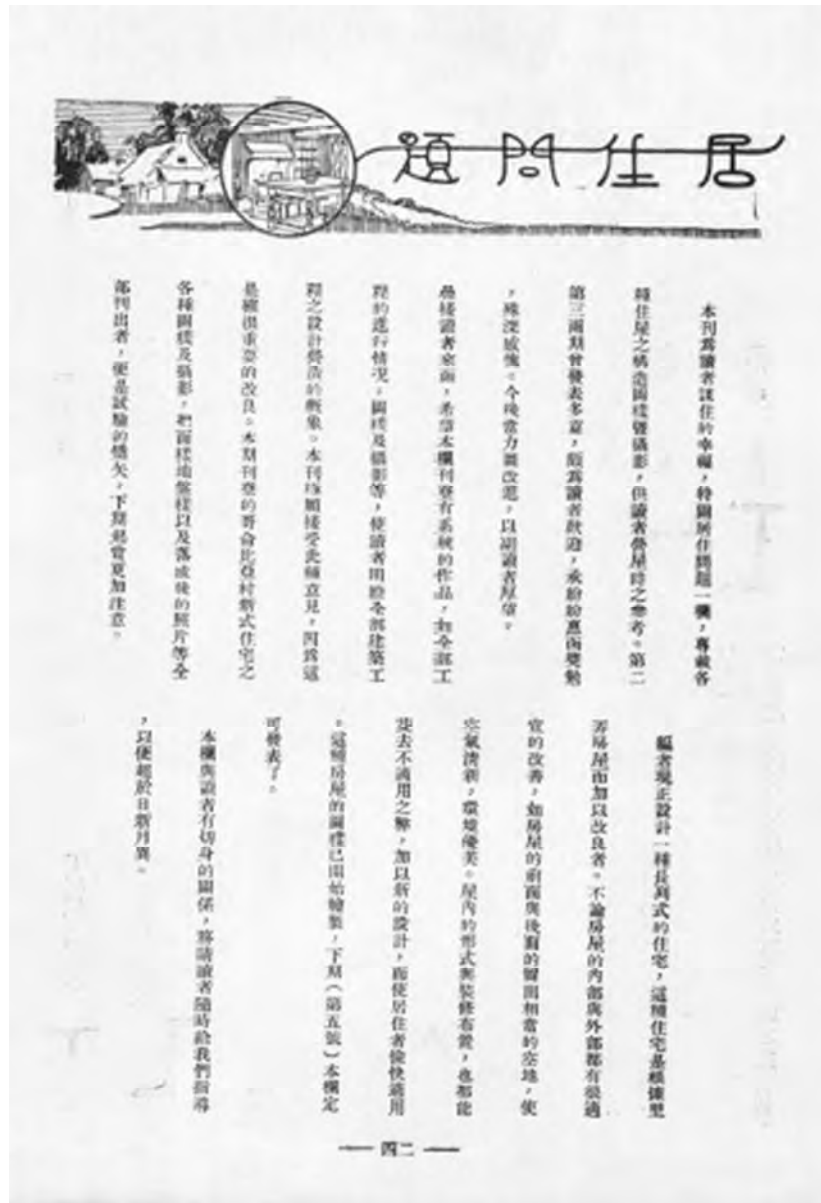 居住問題
本刊為讀者謀住的幸福,特闢居住問題一欄,專載各
種住屋之構造圖樣暨攝影,供讀者營屋時之參考。第二
第三兩期曾發表多章,頗為讀者歡迎,承紛紛惠函獎勉
,殊深感愧。今後當力圖改進,以副讀者厚望。
疊接讀者來函,希望本欄刊登有系統的作品,如全部工
程的進行情況,圖樣及攝影等,使讀者明瞭全部建築工
程之設計營造的概象。本刊極願接受此種意見,因為這
是極很重要的改良。本期刊登的哥倫比亞村新式住宅之
各種圖樣及攝影,把面樣地盤樣以及落成後的照片等全
部刊出者,便是試驗的嚆矢。下期起當更加注意。
編者現正設計一種長列式的住宅,這種住宅是根據里
弄房屋而加以改良者。不論房屋的內部與外部都有很適
宜的改善,如房屋的前面與後面的留開相當的空地,使
空氣清新,環境優美。屋內的形式與裝修布置,也都能
除去不適用之弊,加以新的設計,而使居住者愉快適用
。這種房屋的圖樣已開始繪製,下期(第五號)本欄定
可發表了。
本欄與讀者有切身的關係,將請讀者隨時給我們指導
,以便趨於日新月異。
— 四二 —